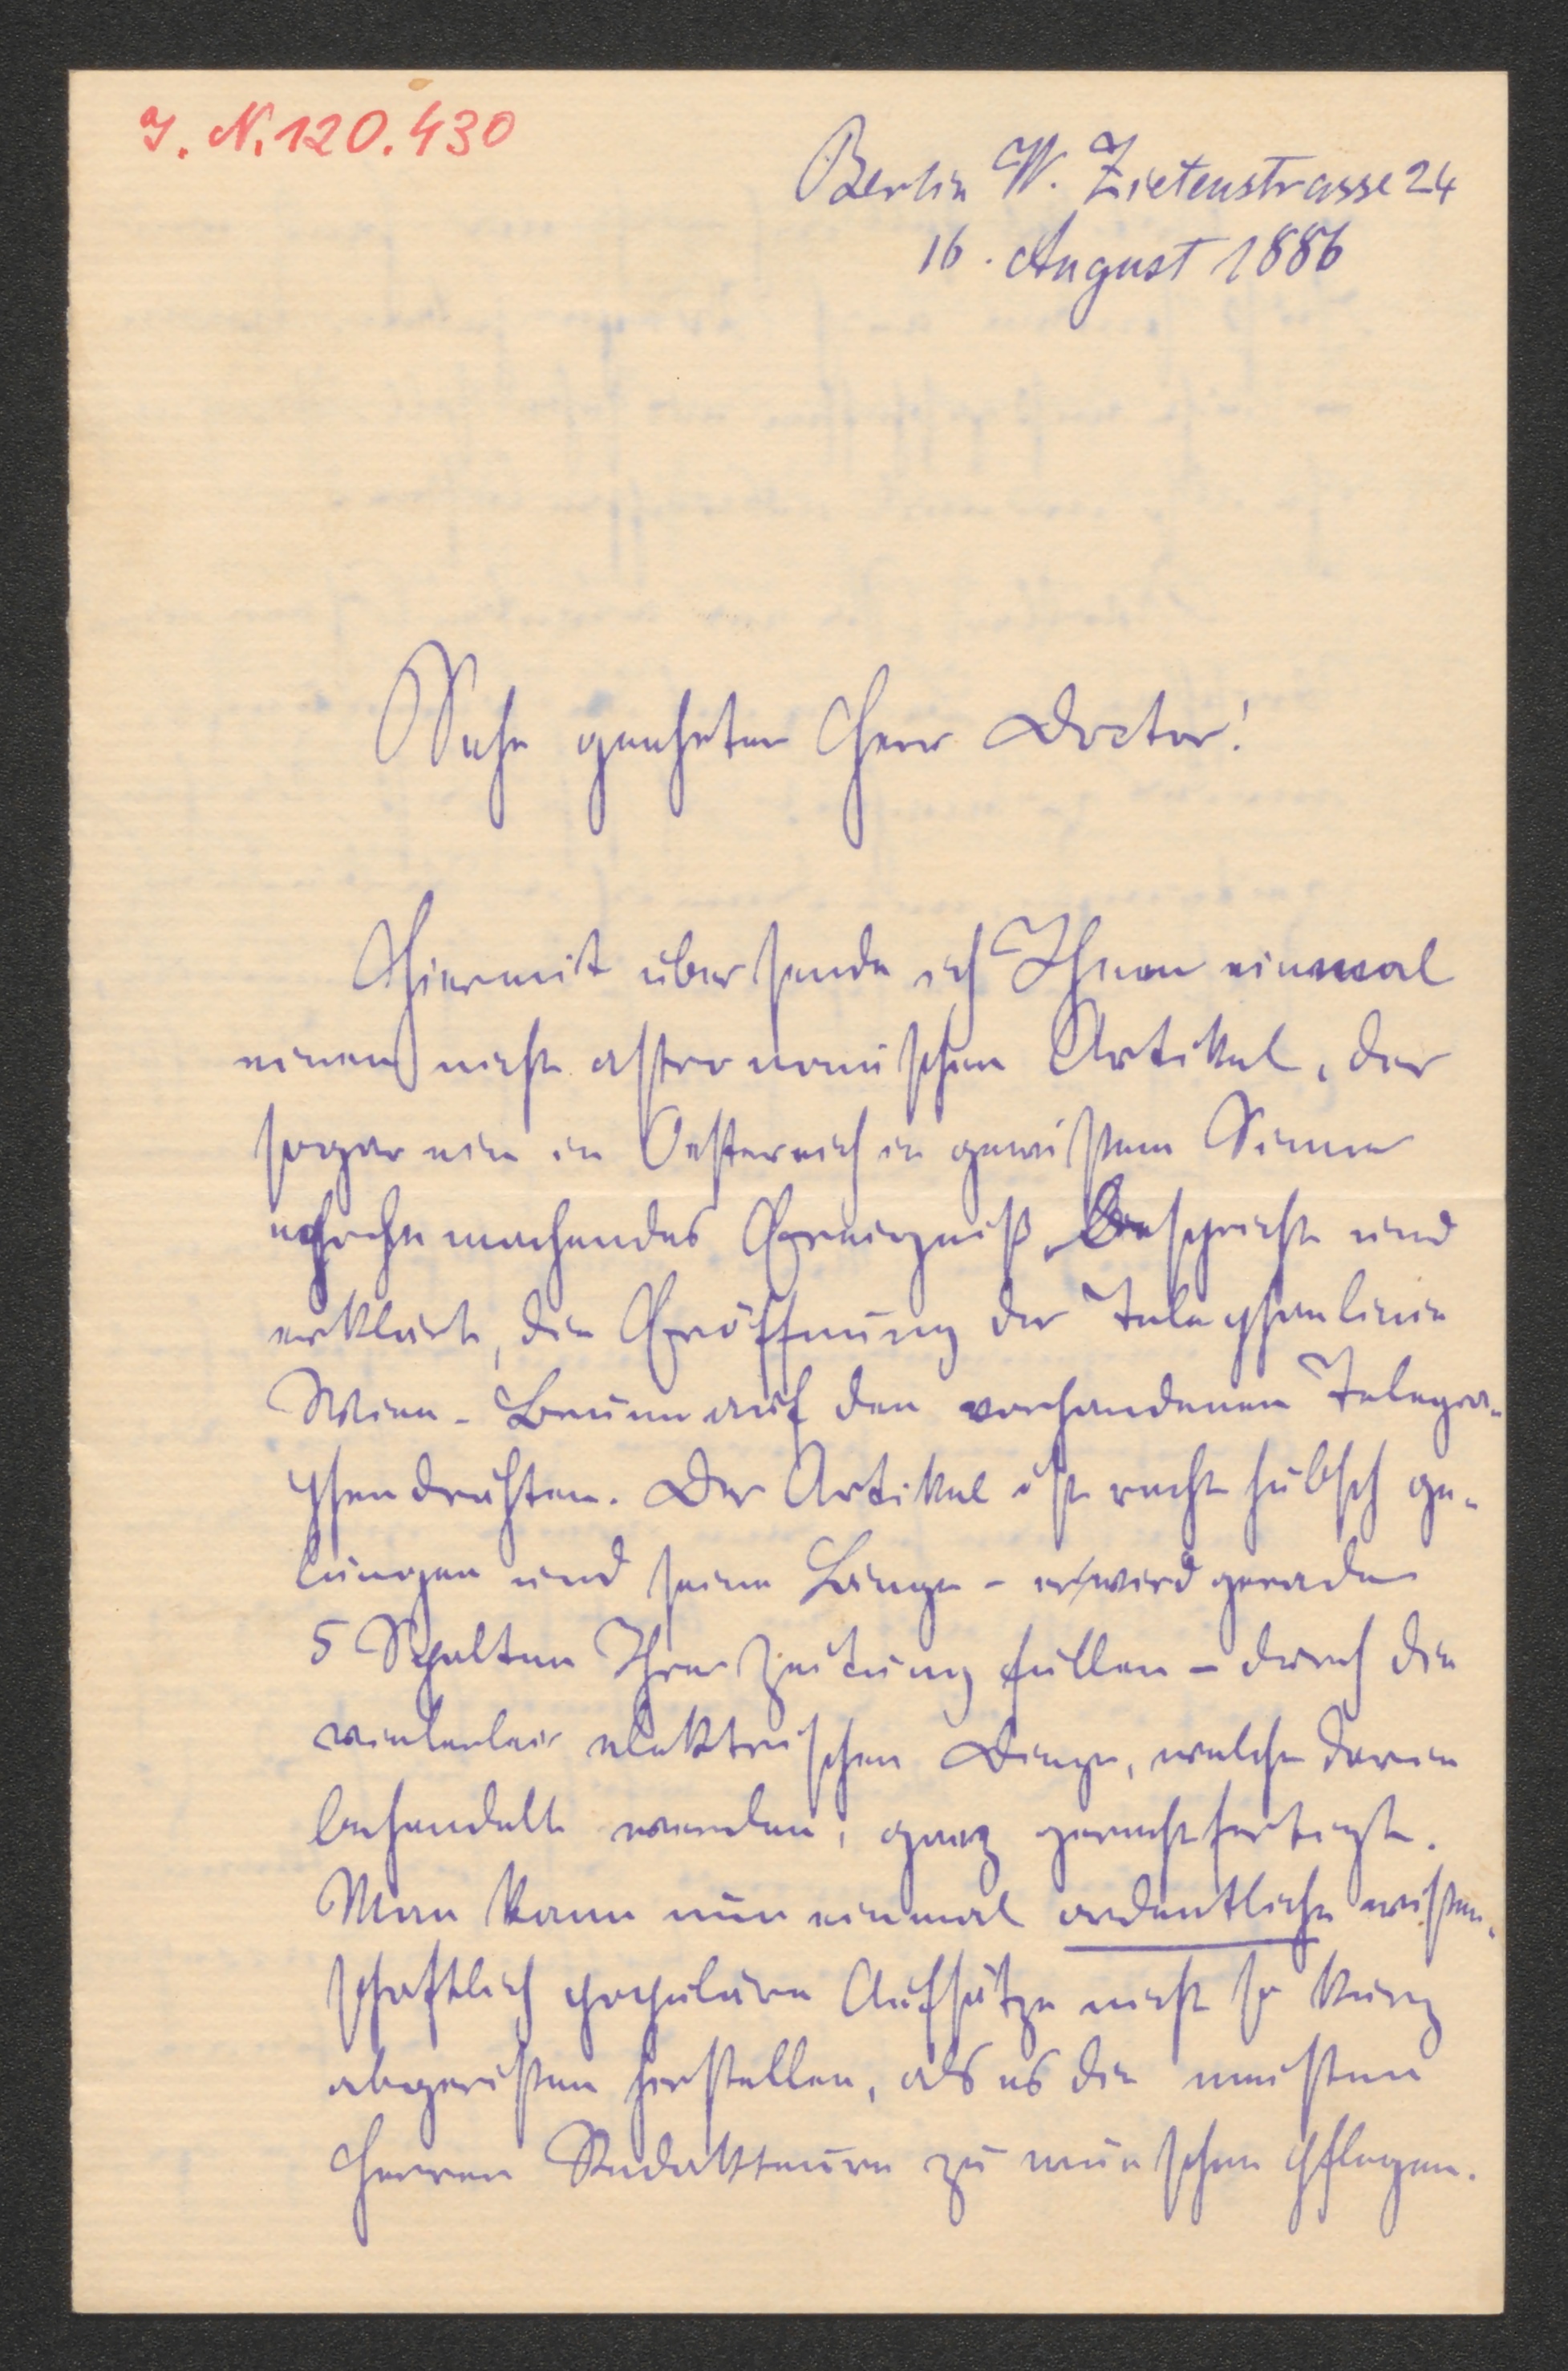 J. N. 120.430
Berlin W. Zietenstrasse 24
16. August 1886
Sehr geehrter Herr Doctor!
Hiermit übersende ich Ihnen einmal
einen nicht astronomischen Artikel, der
sogar ein in Oesterreich in gewißem Sinne
epochemachendes Ereigniß bespricht und
erklärt, die Eröffnung der Telephonlinie
Wien-Brünn auf den vorhandenen Telegra-
phendrähten. Der Artikel ist recht hübsch ge-
lungen und seine Länge - er wird gerade
5 Spalten Ihrer Zeitung füllen - durch die
vielerlei elektrischen Dinge, welche darin
behandelt werden, ganz gerechtfertigt.
Man kann nun einmal ordentliche wißen-
schaftlich populäre Aufsätze nicht so kurz
abgerißen herstellen, als es die meisten
Herren Redakteure zu wünschen pflegen.